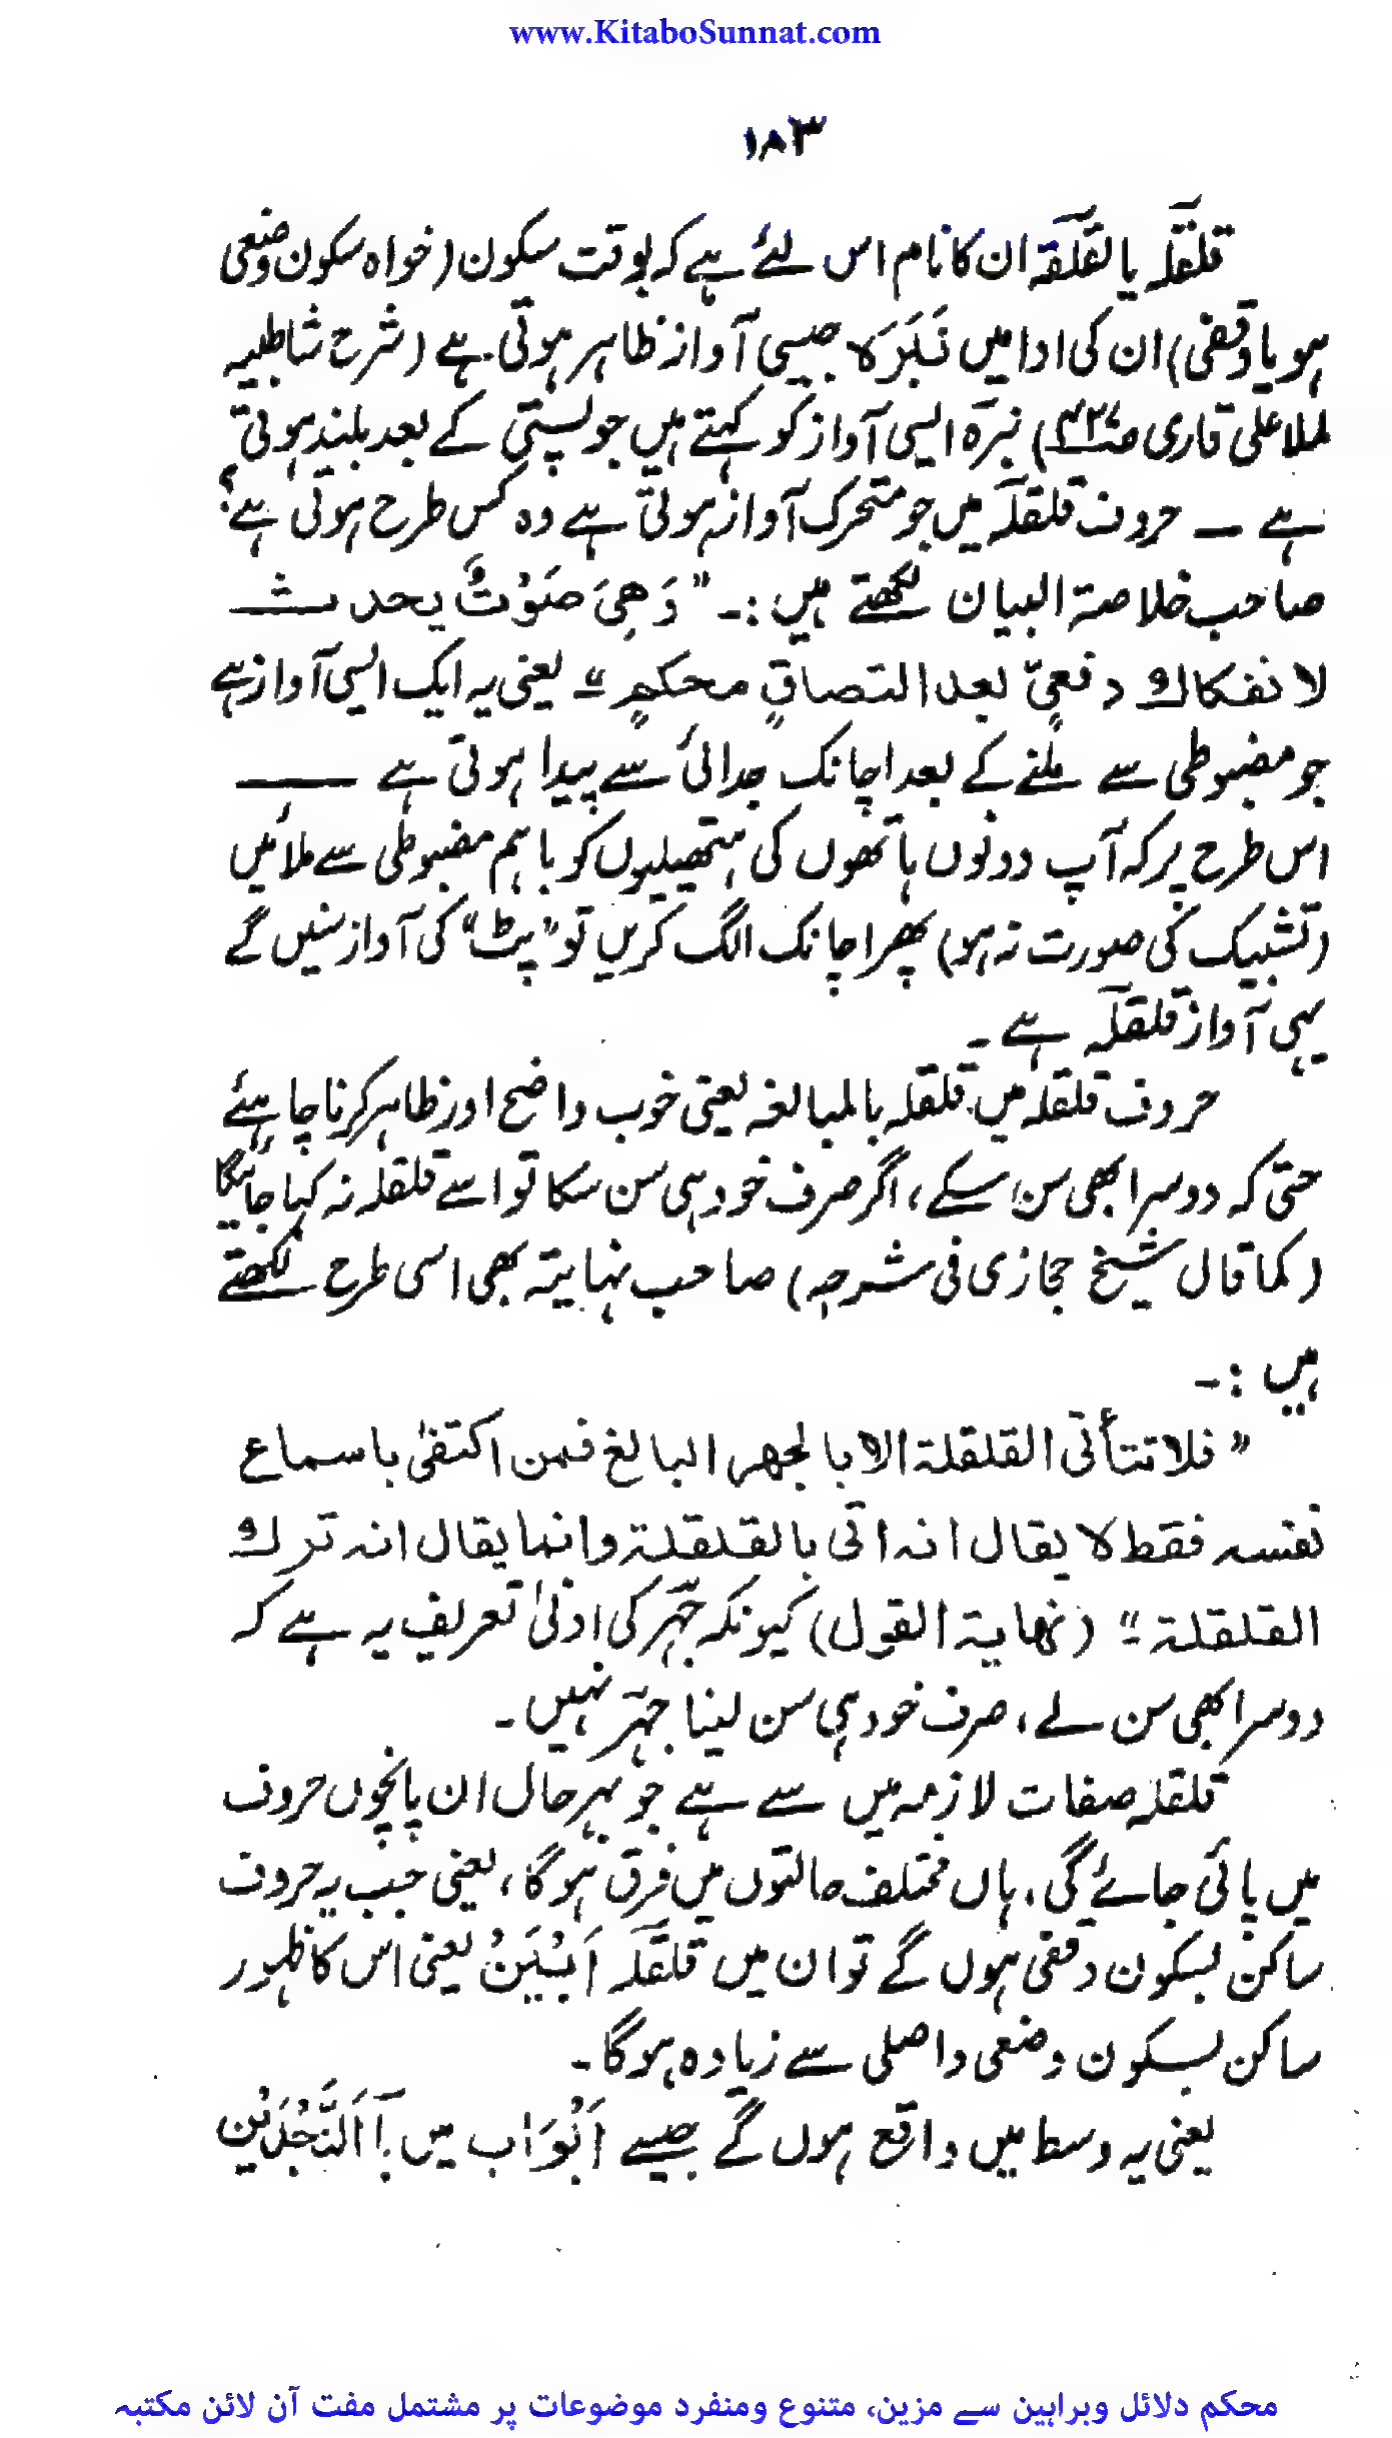 www.KitaboSunnat.com
۱۸۳
قلقلہ یا لقلقہ ان کا نام اس لئے ہے کہ بوقت سکون (خواہ سکون وضعی
ہو یا وقفی) ان کی ادا میں نَبَرَہ جیسی آواز ظاہر ہوتی ہے (شرح شاطبیہ
لملا علی قاری) نبرہ ایسی آواز کو کہتے ہیں جو پستی کے بعد بلند ہوتی
ہے ــ حروف قلقلہ میں جو متحرک آواز ہوتی ہے وہ کس طرح ہوتی ہے؟
صاحب خلاصۃ البیان لکھتے ہیں :۔ ”وَهِيَ صَوْتٌ يحدث
لانفكاك دفعيٍّ بعد التصاقٍ محكمٍ“ یعنی یہ ایک ایسی آواز ہے
جو مضبوطی سے ملنے کے بعد اچانک جدائی سے پیدا ہوتی ہے ــــ
اس طرح پر کہ آپ دونوں ہاتھوں کی ہتھیلیوں کو باہم مضبوطی سے ملائیں
(تشبیک کی صورت نہ ہو) پھر اچانک الگ کریں تو ”پٹ“ کی آواز سنیں گے
یہی آواز قلقلہ ہے ۔
حروف قلقلہ میں قلقلہ بالمبالغہ یعنی خوب واضح اور ظاہر کرنا چاہئے
حتی کہ دوسرا بھی سن سکے، اگر صرف خود ہی سن سکا تو اسے قلقلہ نہ کہا جائیگا
(کما قال شیخ حجازی فی شرحہ) صاحب نہایتہ بھی اسی طرح لکھتے
ہیں :۔
”فلا تتأتى القلقلة الا بالجهر البالغ فمن اكتفىٰ باسماع
نفسه فقط لا يقال انه اتى بالقلقلة وانما يقال انه ترك
القلقلة“ (نهاية القول) کیونکہ جہر کی ادنیٰ تعریف یہ ہے کہ
دوسرا بھی سن لے، صرف خود ہی سن لینا جہر نہیں ۔
قلقلہ صفات لازمہ میں سے ہے جو بہر حال ان پانچوں حروف
میں پائی جائے گی، ہاں مختلف حالتوں میں فرق ہوگا، یعنی جب یہ حروف
ساکن بسکون وقفی ہوں گے تو ان میں قلقلہ اَبْیَنُ یعنی اس کا ظہور
ساکن بسکون وضعی واصلی سے زیادہ ہوگا ۔
یعنی یہ وسط میں واقع ہوں گے جیسے اَبْوَاب میں بآ اَلنَّجْدَیْن
محکم دلائل وبراہین سے مزین، متنوع ومنفرد موضوعات پر مشتمل مفت آن لائن مکتبہ